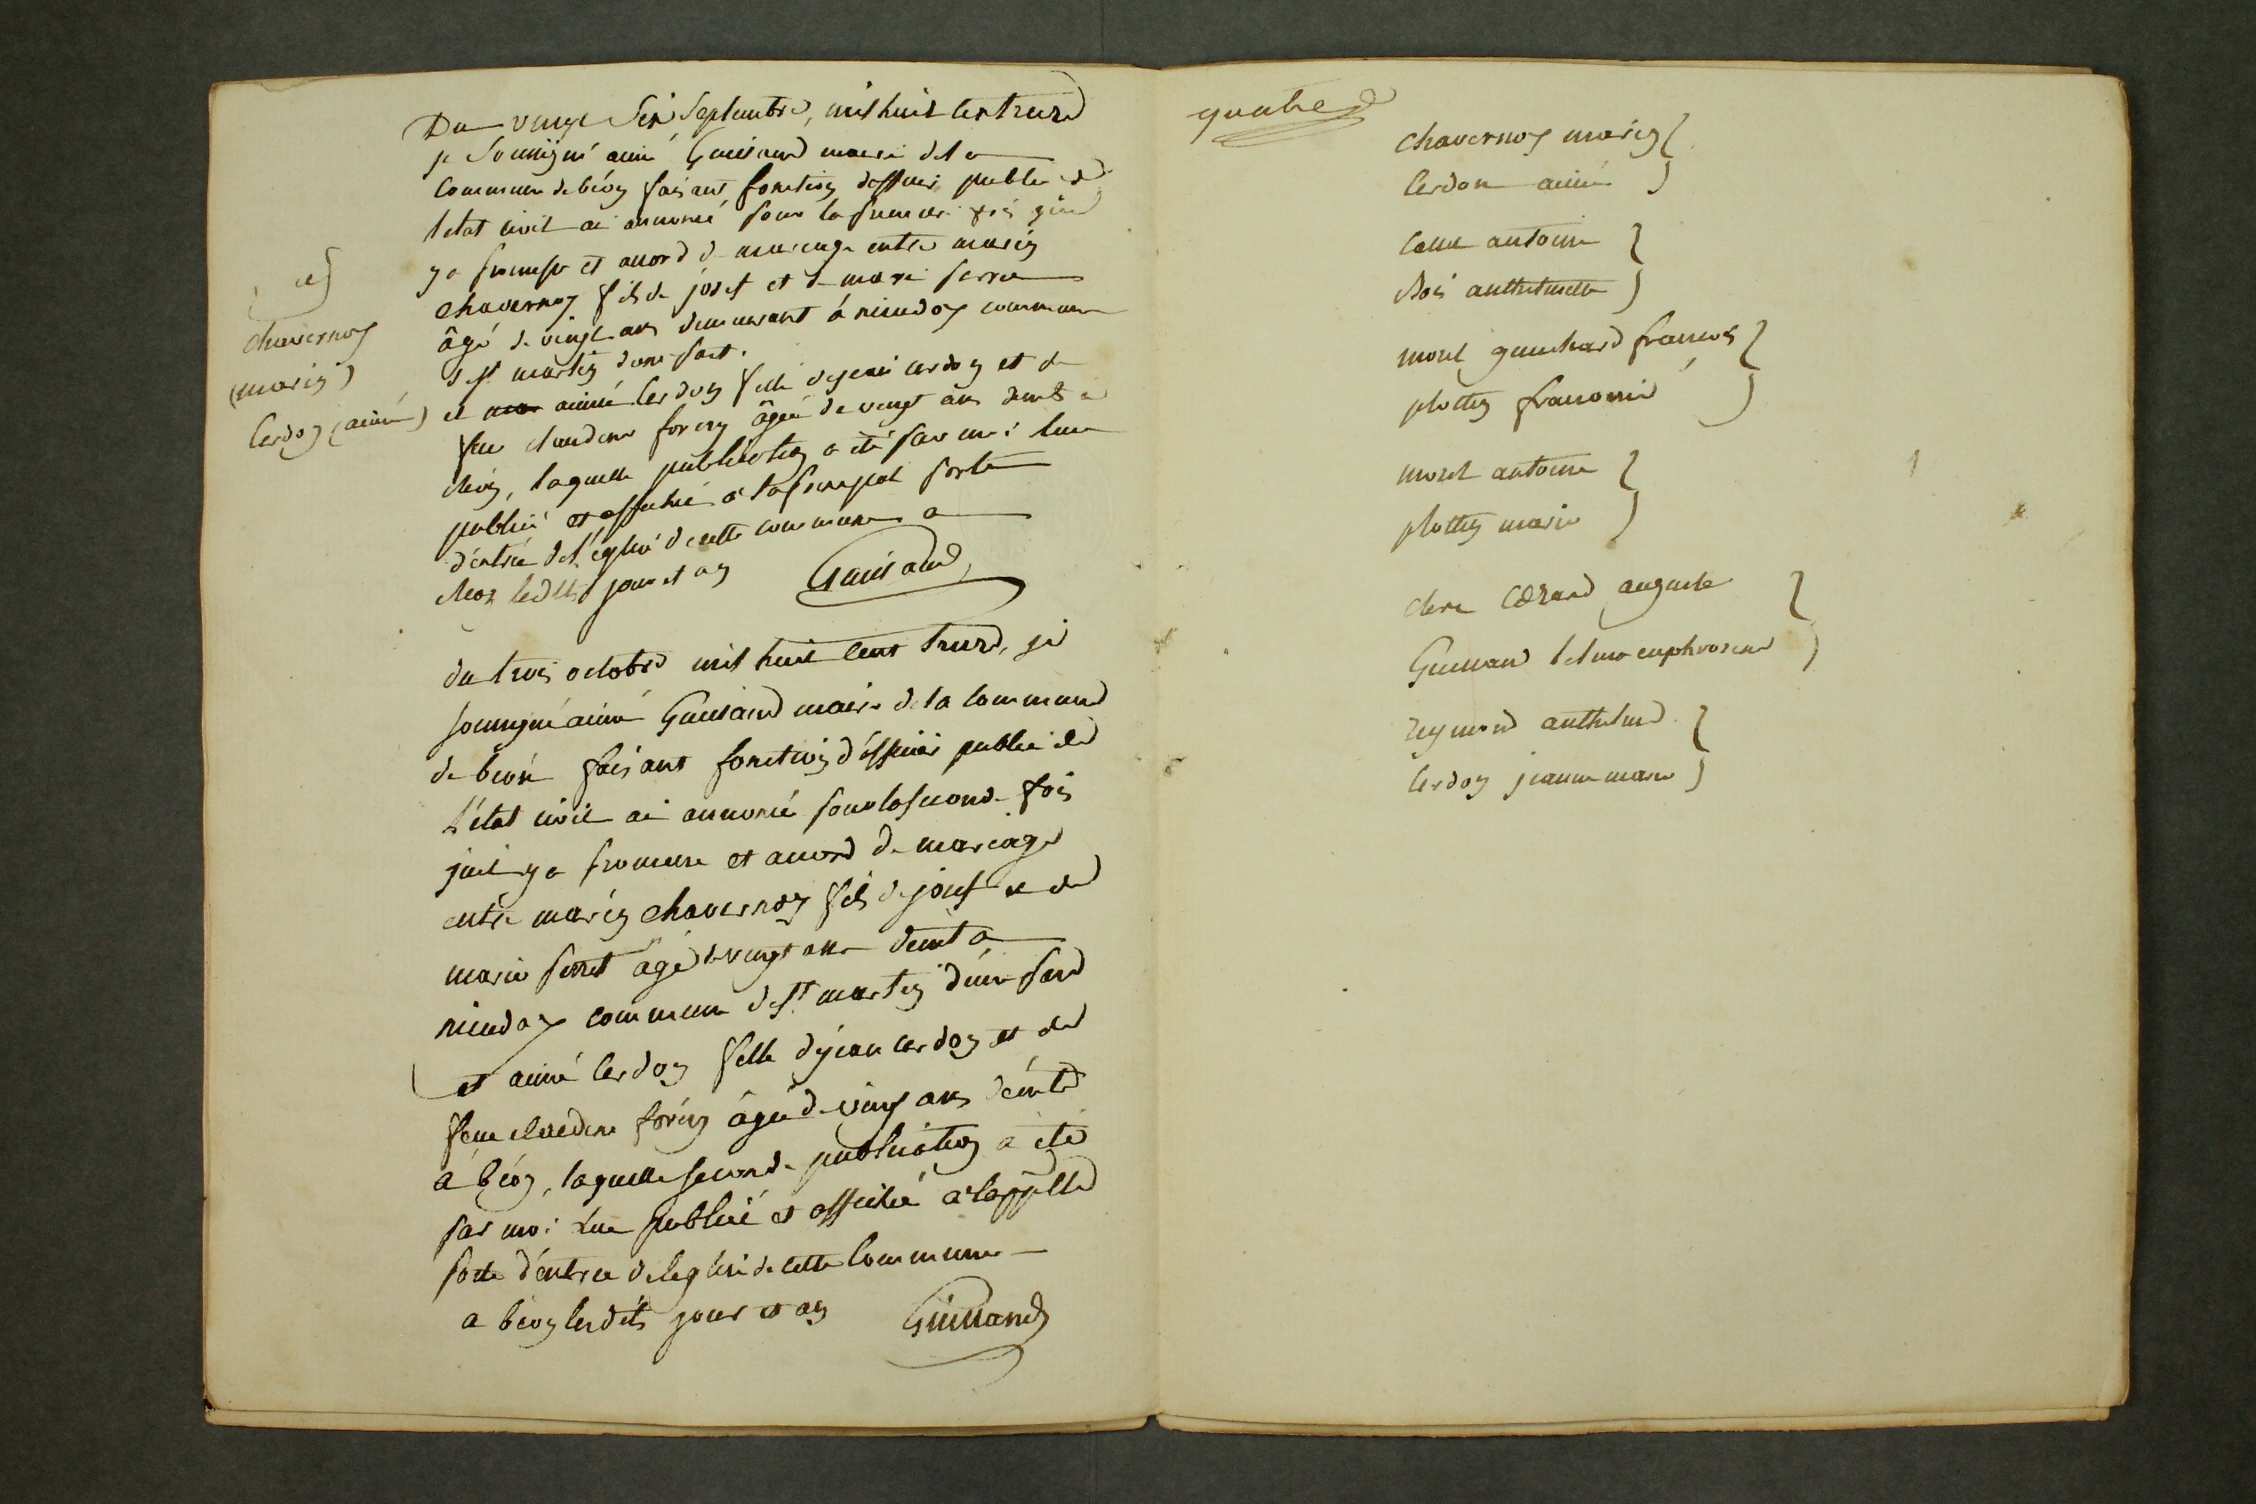 Du vingt Six Septembre, mil huit cent treize
je Soussigné aimé Guinand maire de la
commune de béon faisant fonction doffisier public de
letat civil ai annoncé pour la premier fois quil
ya promesse et accord de mariage entre marin
chavernoz fils de josef et de marie perret
âgé de vingt ans demeurant à commune
de st martin
et aimé Cerdon fille de jean cerdon et de
feu claudine forin âgée de vingt ans demt a
béon, laquelle publication a été par moi lue
publié et affiché a la principal porte
d'éntrée de l'églisé de cette commune a
béon lesdits jour et an Guinand
1 ef
chavernoz
(marin)
Cerdon (aimé)
du trois octobre mil huit cent treize, je
soussigné aimé Guinand maire de la commune
de béon faisant fonction d'officier public de
l'état civil ai annoncé pour la seconde fois
quil ya promesse et accord de mariage
entre marin chavernoz fils de josef et de
marie perret âgé de vingt ans demt a
commune de st martin
et aimé Cerdon fille de jean cerdon et de
feue claudine forin âgée de vingt ans demte
a béon, laquelle seconde publication a été
par moi lue publié et affiché a
porte d'éntrée de leglise de cette commune
a béon lesdits jour et an Guinand
quatre
chavernoz marin
Cerdon aimé
antoine
Bois anthelmette
morel guichard francois
plottin francoise
morel antoine
plottin marie
clerc auguste
Guinand euphrosine
reymond anthelme
Cerdon jeanne marie